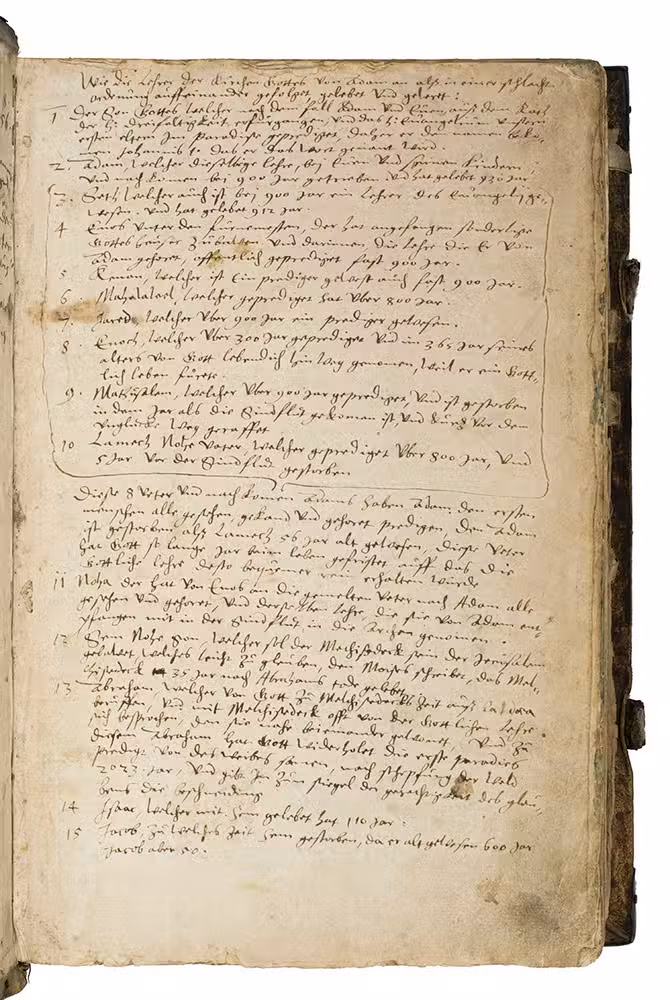 Wie die Lehrer der Kirchen Gottes von Adam an als in einer schlacht
ordenung auffeinander gefolget, gelebet und geleret:
1 Der Son Gottes welcher nach dem fall Adam und Euen, aus dem Rath
der H: Dreifaltigkeit, erfürgangen, und das H: Euangelium unsern
ersten eltern im Paradise geprediget, daher er den namen
Johannis 1. das er das Wort genant wird.
2. Adam, welcher dieselbige lehre, bei Euen und seinen kindern,
und nachkomen bei 900 Jar getrieben und hat gelebet 930 Jar.
3. Seth welcher auch ist bei 900 Jar ein Lehrer des Euangelij ge-
wesen. und hat gelebet 912 Jar.
4 Enos unter den fürnemesten, der hat angefangen sonderliche
Gottes heuser zu bauten und darinnen, die lehre die Er von
Adam gehoret, offentlich geprediget fast 900 Jar.
5 Kenan, welcher ist Ein prediger gewest auch fast 900 Jar.
6. Mahalaleel, welcher geprediget hat uber 800 Jar.
7. Jared, welcher uber 900 Jar ein prediger gewesen.
8 Enoch, welcher uber 300 Jar geprediget und in 365 Jar seines
alters von Gott lebendich hin weg genomen, weil er ein Gott-
lich leben fürete.
9. Mathusalem, welcher uber 900 Jar geprediget, und ist gestorben
in dem Jar als die Sindflut gekoman ist und kurtz vor dem
unglücke weg geraffet
10 Lamech Nohe Vater, welcher geprediget uber 800 Jar, und
5 Jar vor der Sindflut gestorben
Diese 8 Veter und nach komen Adams haben Adam den ersten
menschen alle gesehen, gekand und gehoret predigen, den Adam
ist gestorben als Lamech 56 Jar alt gewesen, diese Veter
hat Gott so lange Jar beim leben gefristet auff das die
Gottliche lehre desto bequemer rein erhalten würde
11 Noha der hat von Enos an die gemelten Veter nach Adam alle
gesehen und gehoret, und derselben lehre, die sie von Adam ent-
pfangen mit in der Sindflut in die Archen genomen.
12 Sem Nohe Son, welcher sol der Melchisedeck sein der Jerusalem
gebawet welches leicht zu glauben, den Moises schreibet, das Mel-
chisedeck 35 Jar nach Abrahams tode gelebet
13 Abraham, welcher von Gott zu Melchisedecks Zeit aus
beruffen, und mit Melchisedeck offt von der Gottlichen lehre
sich besprochen, den sie nahe beieinander gewonet, und zu
diesem Abraham hat Gott widerholet die erste paradis
predigt von des weibes samen, nach scheffung der weld
2023 Jar, und gibt Im zum siegel der gerechtigkeit des glau-
bens die beschneidung
14 Isaac, welcher mit Sem gelebet hat 110 Jar.
15 Jacob, zu welches zeit Sem gestorben, da er alt gewesen 600 Jar
Jacob aber 50.